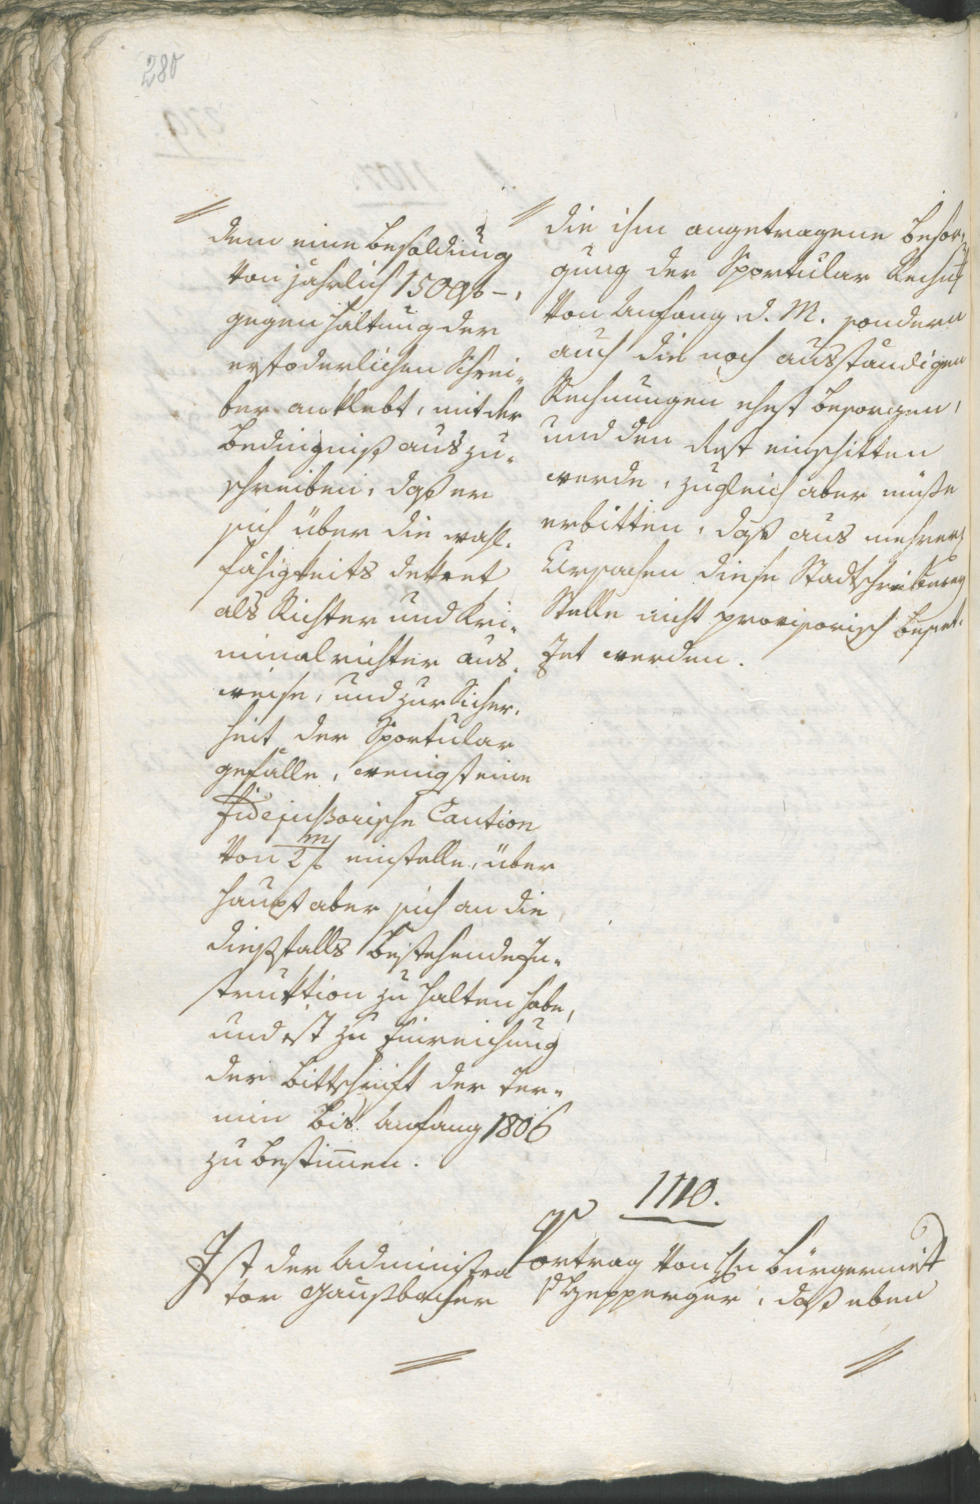 280
dem eine Besoldung
von jährlich 1500 f –,
gegen Haltung der
erfoderlichen Schrei-
ber anklebt, mit der
Bedingniß auszu-
schreiben, daß er
sich über die wahl-
fähigkeits dekret
als Richter und Kri-
minalrichter aus-
weise, und zur Sicher-
heit der Sportular
gefälle, wenigst eine
fidejußorische Caution
von 2 m/f einstelle, über
haupt aber sich an die
dießfalls bestehende In-
struktion zu halten habe,
und ist zu Einreichung
der Bittschrift der Ter-
min bis Anfang 1806
zu bestimen.
die ihm angetragene Besor-
gung der Sportular Rechnung
von Anfang d. M. sondern
auch die noch ausständigen
Rechnungen ehest besorgen,
und den Rest einschitten
werde, zugleich aber müße
erbitten, daß aus mehrern
Ursachen diese Stadtschreiberey
Stelle nicht provisorisch besez-
zet werden.
1110.
Ist der Administra
tor Gaußbacher
Vortrag von Hn Bürgermeister
daß eben